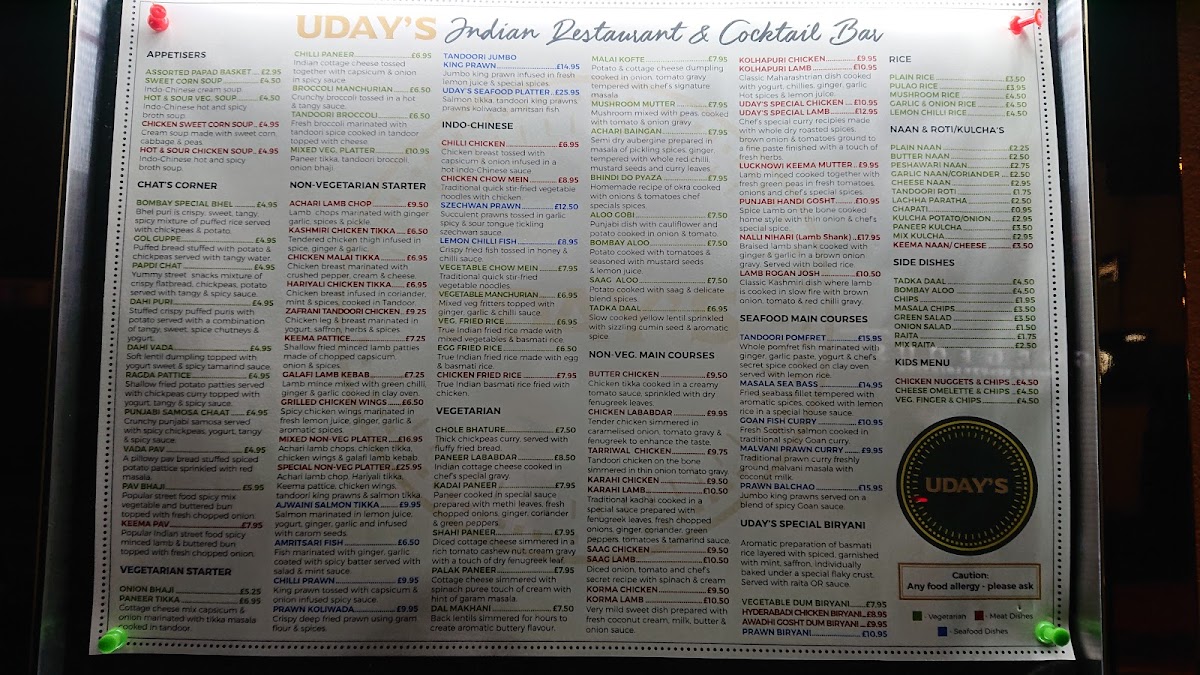 UDAY'S Indian Restaurant & Cocktail Bar
APPETISERS
ASSORTED PAPAD BASKET .... £2.95
SWEET CORN SOUP ..... £4.50
Indo-Chinese cream soup.
HOT & SOUR VEG. SOUP ..... £4.50
Indo-Chinese hot and spicy
broth soup
CHICKEN SWEET CORN SOUP.. £4.95
Cream soup made with sweet corn,
cabbage & peas.
HOT & SOUR CHICKEN SOUP.. £4.95
Indo-Chinese hot and spicy
broth soup.
CHAT'S CORNER
BOMBAY SPECIAL BHEL ..... £4.95
Bhel puri is crispy, sweet, tangy,
spicy mixture of puffed rice served
with chickpeas & potato.
GOL GUPPE ..... £4.95
Puffed bread stuffed with potato &
chickpeas served with tangy water.
PAPDI CHAT ..... £4.95
Yummy street snacks mixture of
crispy flatbread, chickpeas, potato
served with tangy & spicy sauce.
DAHI PURI ..... £4.95
Stuffed crispy puffed puris with
potato served with a combination
of tangy, sweet, spice chutneys &
yogurt.
DAHI VADA ..... £4.95
Soft lentil dumpling topped with
yogurt sweet & spicy tamarind sauce.
RAGDA PATTICE ..... £4.95
Shallow fried potato patties served
with chickpeas curry topped with
yogurt, tangy & spicy sauce.
PUNJABI SAMOSA CHAAT ..... £4.95
Crunchy punjabi samosa served
with spicy chickpeas, yogurt, tangy
& spicy sauce.
VADA PAV ..... £4.95
A pillowy pav bread stuffed spiced
potato pattice sprinkled with red
masala.
PAV BHAJI ..... £5.95
Popular street food spicy mix
vegetable and buttered bun
topped with fresh chopped onion.
KEEMA PAV ..... £7.95
Popular Indian street food spicy
minced lamb & buttered bun
topped with fresh chopped onion.
VEGETARIAN STARTER
ONION BHAJI ..... £5.25
PANEER TIKKA ..... £6.95
Cottage cheese mix capsicum &
onion marinated with tikka masala
cooked in tandoor.
CHILLI PANEER ..... £6.95
Indian cottage cheese tossed
together with capsicum & onion
in spicy sauce.
BROCCOLI MANCHURIAN ..... £6.50
Crunchy broccoli tossed in a hot
& tangy sauce.
TANDOORI BROCCOLI ..... £6.50
Fresh broccoli marinated with
tandoori spice cooked in tandoor
topped with cheese
MIXED VEG. PLATTER ..... £10.95
Paneer tikka, tandoori broccoli,
onion bhaji.
NON-VEGETARIAN STARTER
ACHARI LAMB CHOP ..... £9.50
Lamb, chops marinated with ginger
garlic, spices & pickle.
KASHMIRI CHICKEN TIKKA ..... £6.50
Tendered chicken thigh infused in
spice, ginger & garlic.
CHICKEN MALAI TIKKA ..... £6.95
Chicken breast marinated with
crushed pepper, cream & cheese.
HARIYALI CHICKEN TIKKA ..... £6.95
Chicken breast infused in coriander,
mint & spices, cooked in Tandoor.
ZAFRANI TANDOORI CHICKEN .. £9.25
Chicken leg & breast marinated in
yogurt, saffron, herbs & spices.
KEEMA PATTICE ..... £7.25
Shallow fried minced lamb patties
made of chopped capsicum,
onion & spices.
GALAFI LAMB KEBAB ..... £7.25
Lamb mince mixed with green chilli,
ginger & garlic cooked in clay oven.
GRILLED CHICKEN WINGS ..... £6.50
Spicy chicken wings marinated in
fresh lemon juice, ginger & garlic &
aromatic spices.
MIXED NON-VEG PLATTER ..... £16.95
Achari lamb chops, chicken tikka,
chicken wings & galafi lamb kebab
SPECIAL NON-VEG PLATTER .. £25.95
Achari lamb chop, Hariyali tikka,
Keema pattice, chicken wings,
tandoori king prawns & salmon tikka.
AJWAINI SALMON TIKKA ..... £9.95
Salmon marinated in lemon juice,
yogurt, ginger, garlic and infused
with carom seeds.
AMRITSARI FISH ..... £6.50
Fish marinated with ginger, garlic
coated with spicy batter served with
salad & mint sauce.
CHILLI PRAWN ..... £9.95
King prawn tossed with capsicum &
onion infused spicy sauce.
PRAWN KOLIWADA ..... £9.95
Crispy deep fried prawn using gram
flour & spices.
TANDOORI JUMBO
KING PRAWN ..... £14.95
Jumbo king prawn infused in fresh
lemon juice & special spices.
UDAY'S SEAFOOD PLATTER .. £25.95
Salmon tikka, tandoori king prawns,
prawns koliwada, amritsari fish
INDO-CHINESE
CHILLI CHICKEN ..... £6.95
Chicken breast tossed with
capsicum & onion infused in a
hot indo-Chinese sauce
CHICKEN CHOW MEIN ..... £8.95
Traditional quick stir-fried vegetable
noodles with chicken.
SZECHWAN PRAWN ..... £12.50
Succulent prawns tossed in garlic
spicy & sour tongue tickling
szechwan sauce.
LEMON CHILLI FISH ..... £8.95
Crispy fried fish tossed in honey &
chilli sauce.
VEGETABLE CHOW MEIN ..... £7.95
Traditional quick stir-fried
vegetable noodles.
VEGETABLE MANCHURIAN ..... £6.95
Mixed veg fritters topped with
ginger, garlic & chilli sauce.
VEG. FRIED RICE ..... £6.95
True Indian fried rice made with
mixed vegetables & basmati rice
EGG FRIED RICE ..... £6.50
True Indian fried rice made with egg
& basmati rice.
CHICKEN FRIED RICE ..... £7.95
True Indian basmati rice fried with
chicken.
VEGETARIAN
CHOLE BHATURE ..... £7.50
Thick chickpeas curry, served with
fluffy fried bread.
PANEER LABABDAR ..... £8.50
Indian cottage cheese cooked in
chef's special gravy.
KADAI PANEER ..... £7.95
Paneer cooked in special sauce
prepared with methi leaves, fresh
chopped onions, ginger, coriander
& green peppers.
SHAHI PANEER ..... £7.95
Diced cottage cheese simmered in a
rich tomato cashew nut, cream gravy
with a touch of dry fenugreek leaf.
PALAK PANEER ..... £7.95
Cottage cheese simmered with
spinach puree touch of cream with
hint of garam masala.
DAL MAKHANI ..... £7.50
Back lentils simmered for hours to
create aromatic buttery flavour.
MALAI KOFTE ..... £7.95
Potato & cottage cheese dumpling
cooked in onion, tomato gravy
tempered with chef's signature
masala.
MUSHROOM MUTTER ..... £7.95
Mushroom mixed with peas, cooked
with tomato & onion gravy
ACHARI BAINGAN ..... £7.95
Semi dry aubergine prepared in
masala of pickling spices, ginger,
tempered with whole red chilli,
mustard seeds and curry leaves.
BHINDI DO PYAZA ..... £7.95
Homemade recipe of okra cooked
with onions & tomatoes chef
specials spices
ALOO GOBI ..... £7.50
Punjabi dish with cauliflower and
potato cooked in onion & tomato.
BOMBAY ALOO ..... £7.50
Potato cooked with tomatoes &
seasoned with mustard seeds
& lemon juice.
SAAG ALOO ..... £7.50
Potato cooked with saag & delicate
blend spices.
TADKA DAAL ..... £6.95
Slow cooked yellow lentil sprinkled
with sizzling cumin seed & aromatic
spice.
NON-VEG. MAIN COURSES
BUTTER CHICKEN ..... £9.50
Chicken tikka cooked in a creamy
tomato sauce, sprinkled with dry
fenugreek leaves.
CHICKEN LABABDAR ..... £9.95
Tender chicken simmered in
caramelised onion, tomato gravy &
fenugreek to enhance the taste.
TARRIWAL CHICKEN ..... £9.75
Tandoori chicken on the bone
simmered in thin onion tomato gravy.
KARAHI CHICKEN ..... £9.50
KARAHI LAMB ..... £10.50
Traditional kadhai cooked in a
special sauce prepared with
fenugreek leaves, fresh chopped
onions, ginger, coriander, green
peppers, tomatoes & tamarind sauce.
SAAG CHICKEN ..... £9.50
SAAG LAMB ..... £10.50
Diced onion, tomato and chef's
secret recipe with spinach & cream
KORMA CHICKEN ..... £9.50
KORMA LAMB ..... £10.50
Very mild sweet dish prepared with
fresh coconut cream, milk, butter &
onion sauce.
KOLHAPURI CHICKEN ..... £9.95
KOLHAPURI LAMB ..... £10.95
Classic Maharashtrian dish cooked
with yogurt, chillies, ginger, garlic
Hot spices & lemon juice.
UDAY'S SPECIAL CHICKEN ..... £10.95
UDAY'S SPECIAL LAMB ..... £12.95
Chef's special curry recipies made
with whole dry roasted spices,
brown onion & tomatoes ground to
a fine paste finished with a touch of
fresh herbs.
LUCKNOWI KEEMA MUTTER .. £9.95
Lamb minced cooked together with
fresh green peas in fresh tomatoes,
onions and chef's special spices.
PUNJABI HANDI GOSHT ..... £10.95
Spice Lamb on the bone cooked
home style with thin onion & chef's
special spice.
NALLI NIHARI (Lamb Shank) .. £17.95
Braised lamb shank cooked with
ginger & garlic in a brown onion
gravy. Served with boiled rice.
LAMB ROGAN JOSH ..... £10.50
Classic Kashmiri dish where lamb
is cooked in slow fire with brown
onion, tomato & red chilli gravy.
SEAFOOD MAIN COURSES
TANDOORI POMFRET ..... £15.95
Whole pomfret fish marinated with
ginger, garlic paste, yogurt & chef's
secret spice cooked on clay oven
served with lemon rice.
MASALA SEA BASS ..... £14.95
Fried seabass fillet tempered with
aromatic spices, cooked with lemon
rice in a special house sauce.
GOAN FISH CURRY ..... £10.95
Fresh Scottish salmon cooked in
traditional spicy Goan curry.
MALVANI PRAWN CURRY ..... £9.95
Traditional prawn curry freshly
ground malvani masala with
coconut milk.
PRAWN BALCHAO ..... £15.95
Jumbo king prawns served on a
blend of spicy Goan sauce.
UDAY'S SPECIAL BIRYANI
Aromatic preparation of basmati
rice layered with spiced, garnished
with mint, saffron, individually
baked under a special flaky crust.
Served with raita OR sauce.
VEGETABLE DUM BIRYANI ..... £7.95
HYDERABADI CHICKEN BIRYANI .. £8.95
AWADHI GOSHT DUM BIRYANI ..... £9.95
PRAWN BIRYANI ..... £10.95
RICE
PLAIN RICE ..... £3.50
PULAO RICE ..... £3.95
MUSHROOM RICE ..... £4.50
GARLIC & ONION RICE ..... £4.50
LEMON CHILLI RICE ..... £4.50
NAAN & ROTI/KULCHA'S
PLAIN NAAN ..... £2.25
BUTTER NAAN ..... £2.50
PESHAWARI NAAN ..... £2.75
GARLIC NAAN/CORIANDER ..... £2.50
CHEESE NAAN ..... £2.95
TANDOORI ROTI ..... £1.75
LACHHA PARATHA ..... £2.50
CHAPATI ..... £0.95
KULCHA POTATO/ONION ..... £2.95
PANEER KULCHA ..... £3.50
MIX KULCHA ..... £2.95
KEEMA NAAN/ CHEESE ..... £3.50
SIDE DISHES
TADKA DAAL ..... £4.50
BOMBAY ALOO ..... £4.50
CHIPS ..... £1.95
MASALA CHIPS ..... £3.50
GREEN SALAD ..... £3.50
ONION SALAD ..... £1.50
RAITA ..... £1.75
MIX RAITA ..... £2.50
KIDS MENU
CHICKEN NUGGETS & CHIPS .. £4.50
CHEESE OMELETTE & CHIPS .. £4.50
VEG. FINGER & CHIPS ..... £4.50
UDAY'S
Caution:
Any food allergy - please ask
- Vegetarian - Meat Dishes
- Seafood Dishes